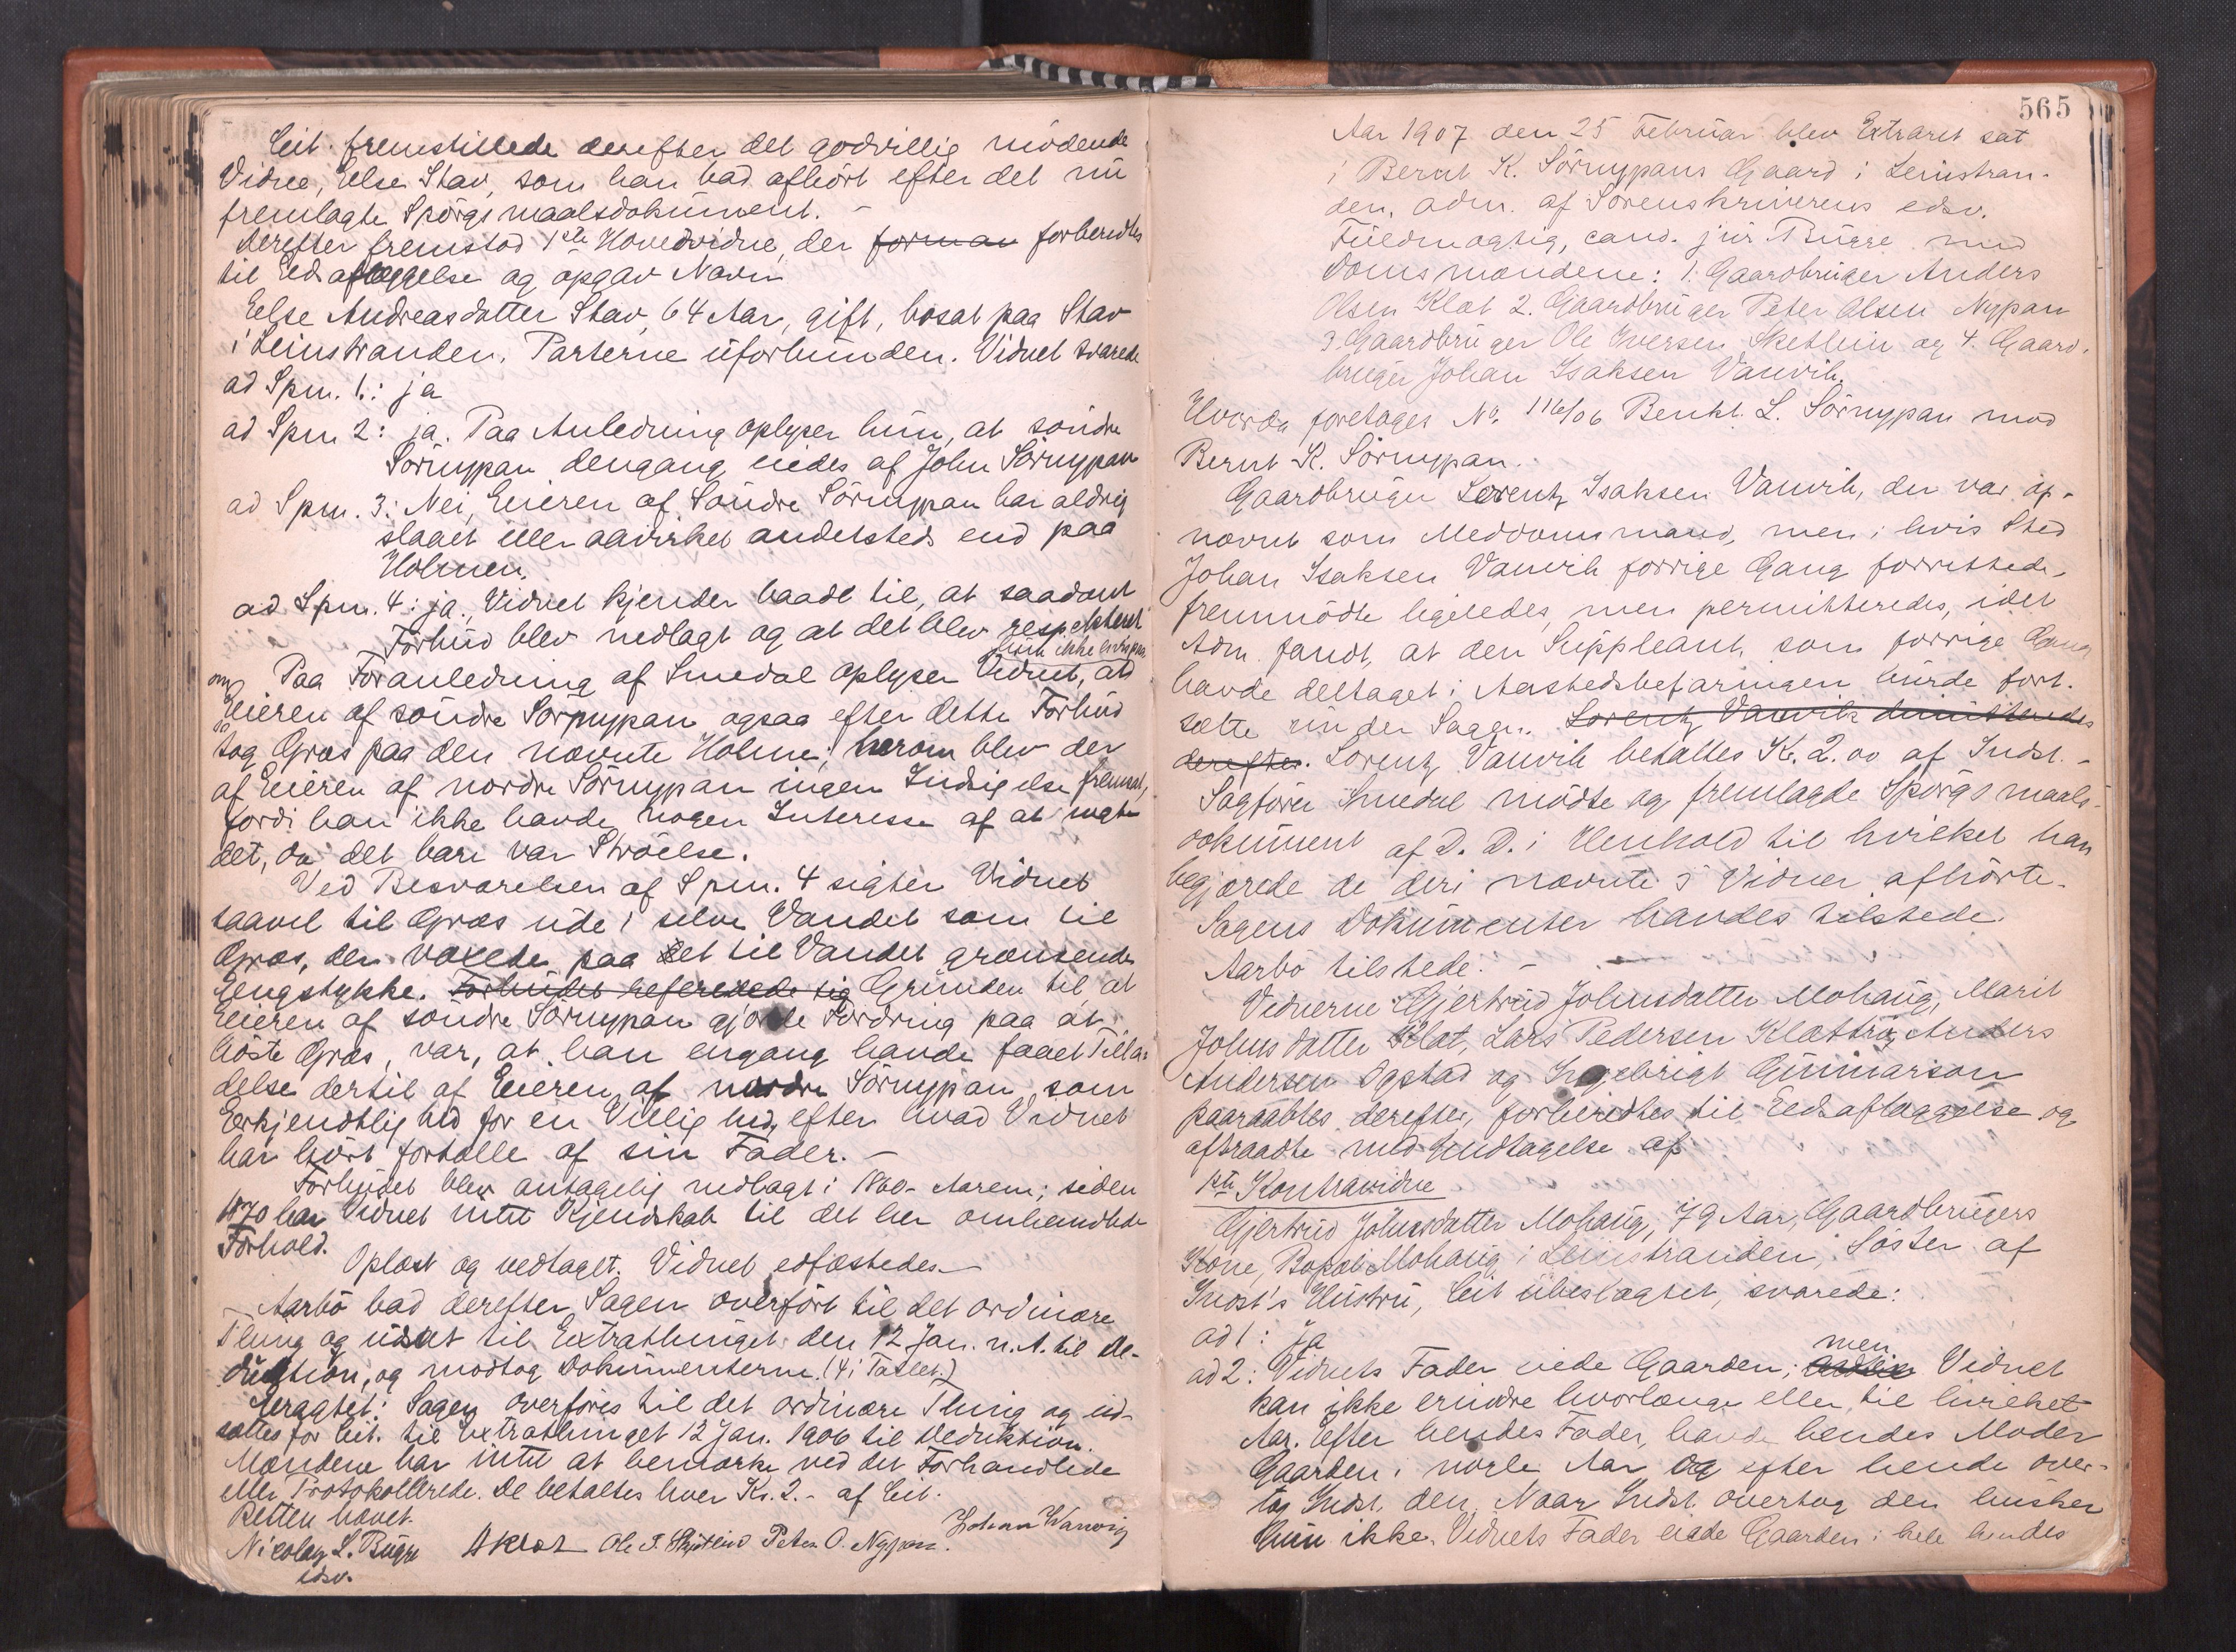 Cit. fremstillede derefter det godvillig mødende
Vidne, Else Stav, som han bad afhørt efter det nu
fremlagte Spørgsmaalsdokument. –
Derefter fremstod 1ste Hovedvidne, der forman forberedtes
til Edsaflæggelse og opgav Navn
Else Andreasdatter Stav, 64 Aar, gift, bosat paa Stav
i Leinstranden. Parterne uforbunden. Vidnet svarede
ad Spm. 1: ja
ad Spm 2: ja. Paa Anledning oplyser hun, at søndre
Sörnypan dengang eiedes af John Sörnypan
ad Spm. 3: Nei, Eieren af Søndre Sörnypan har aldrig
slaaet eller aavirket andetsteds end paa
Holmen.
ad Spm. 4: ja. Vidnet kjender baade til, at saadant
Forbud blev nedlagt og at det blev respekteret
hun ikke
om Paa Foranledning af Smedal oplyser Vidnet, at
Eieren af søndre Sörnypan ogsaa efter dette Forbud
tog Græs paa den nævnte Holme; herom blev der
af Eieren af nordre Sörnypan ingen Indsigelse fremsat,
fordi han ikke havde nogen Interesse af at negte
det, da det bare var Strøelse.
Ved Besvarelsen af Spm. 4 sigter Vidnet
saavel til Græs ude i selve Vandet som til
Græs, der voxede paa det til Vandet grænsende
Engstykke. Forbudet refererede sig Grunden til, at
Eieren af søndre Sörnypan gjorde Fordring paa at
høste Græs, var, at han engang havde faaet Tilla-
delse dertil af Eieren af nordre Sörnypan som
Erkjendtlighed for en Villighed, efter hvad Vidnet
har hørt fortælle af sin Fader. –
Forbudet blev antagelig nedlagt i 1860-Aarene; siden
1870 har Vidnet intet Kjendskab til det her omhandlede
Forhold.
Oplæst og vedtaget. Vidnet edfæstedes. –
Aarbø bad derefter Sagen overført til det ordinære
Thing og udsat til Extrathinget den 12 Jan. n. A. til De-
duktion, og modtog Dokumenterne. (4 i Tallet.)
Eragtet: Sagen overføres til det ordinære Thing og ud-
sættes for Cit. til Extrathinget 12 Jan. 1906 til Deduktion.
Mændene har intet at bemærke ved det Forhandlede
eller Protokollerede. De betaltes hver Kr. 2.- af Cit.
Retten hævet.
Nicolay L. Bugge AKlæt Ole I. Skjetlein Peter O. Nypan. Johan Wanvig
edsv.
565
Aar 1907 den 25 Februar blev Extraret sat
i Bernt K. Sörnypans Gaard i Leinstran-
den, adm. af Sorenskriverens edsv.
Fuldmægtig, cand. jur Bugge med
Domsmændene: 1. Gaardbruger Anders
Olsen Klæt 2. Gaardbruger Peter Olsen Nypan
3. Gaardbruger Ole Iversen Sketlein og 4. Gaard-
bruger Johan Isaksen Vanvik.
Hvorda foretages No. 116/06 Benkt. L. Sörnypan mod
Bernt K. Sörnypan.
Gaardbruger Lorentz Isaksen Vanvik, der var op-
nævnt som Meddomsmand, men i hvis Sted
Johan Isaksen Vanvik forrige Gang forrettede,
fremmødte ligeledes, men permitteredes, idet
Adm. fandt, at den Suppleant, som forrige Gang
havde deltaget i Aastedsbefaringen burde fort-
sætte under Sagen. Lorentz Vanvik dimitteredes
derefter. Lorentz Vanvik betaltes Kr. 2.00 af Indst. –
Sagfører Smedal mødte og fremlagde Spørgsmaals-
dokument af D. D. i Henhold til hvilket han
begjærede de deri nævnte 5 Vidner afhørte.
Sagens Dokumenter havdes tilstede.
Aarbø tilstede. –
Vidnerne Gjertrud Johnsdatter Mohaug, Marit
Johnsdatter Klæt, Lars Pedersen Klættrø, Anders
Andersen Ogstad og Ingebrigt Gunnarson
paaraabtes derefter, forberedtes til Eedsaflæggelse og
aftraadte med Undtagelse af
1ste Kontravidne
Gjertrud Johnsdatter Mohaug, 79 Aar, Gaardbrugers
Kone, Bopæl Mohaug i Leinstranden, Søster af
Indst's Hustru, Cit ubeslægtet, svarede:
ad 1: ja
men
ad 2: Vidnets Fader eiede Gaarden; Vidnet
kan ikke erindre hvorlænge eller til hvilket
Aar. Efter hendes Fader, havde hendes Moder
Gaarden i nogle Aar og efter hende over-
tog Indst. den. Naar Indst overtog den husker
hun ikke. Vidnets Fader eiede Gaarden i hele hendes